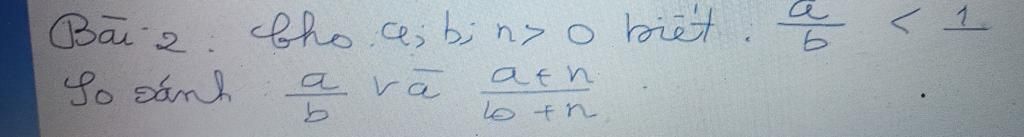 Bài 2: Cho a; b; n > 0 biết. a/b < 1
So sánh a/b và a+n/b+n